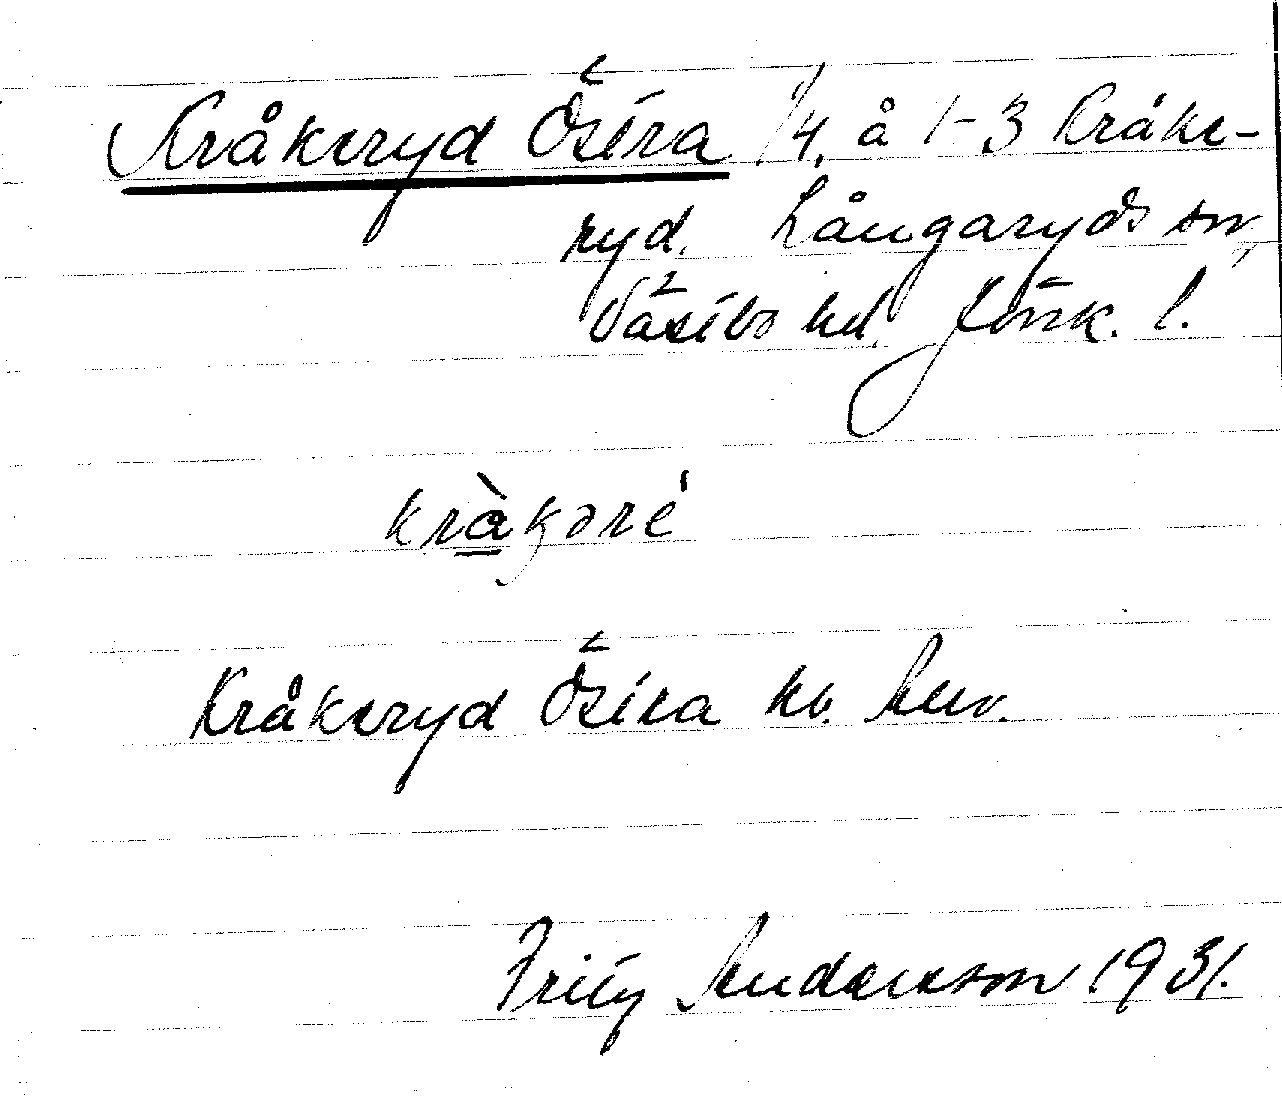 Kråkeryd Östra 1/4, å 1-3 Kråke-
ryd. Långaryds sn,
Västbo hd. Jönk. l.
kràkəré
Kråkeryd Östra kv.
Fritz Anderson 1931.